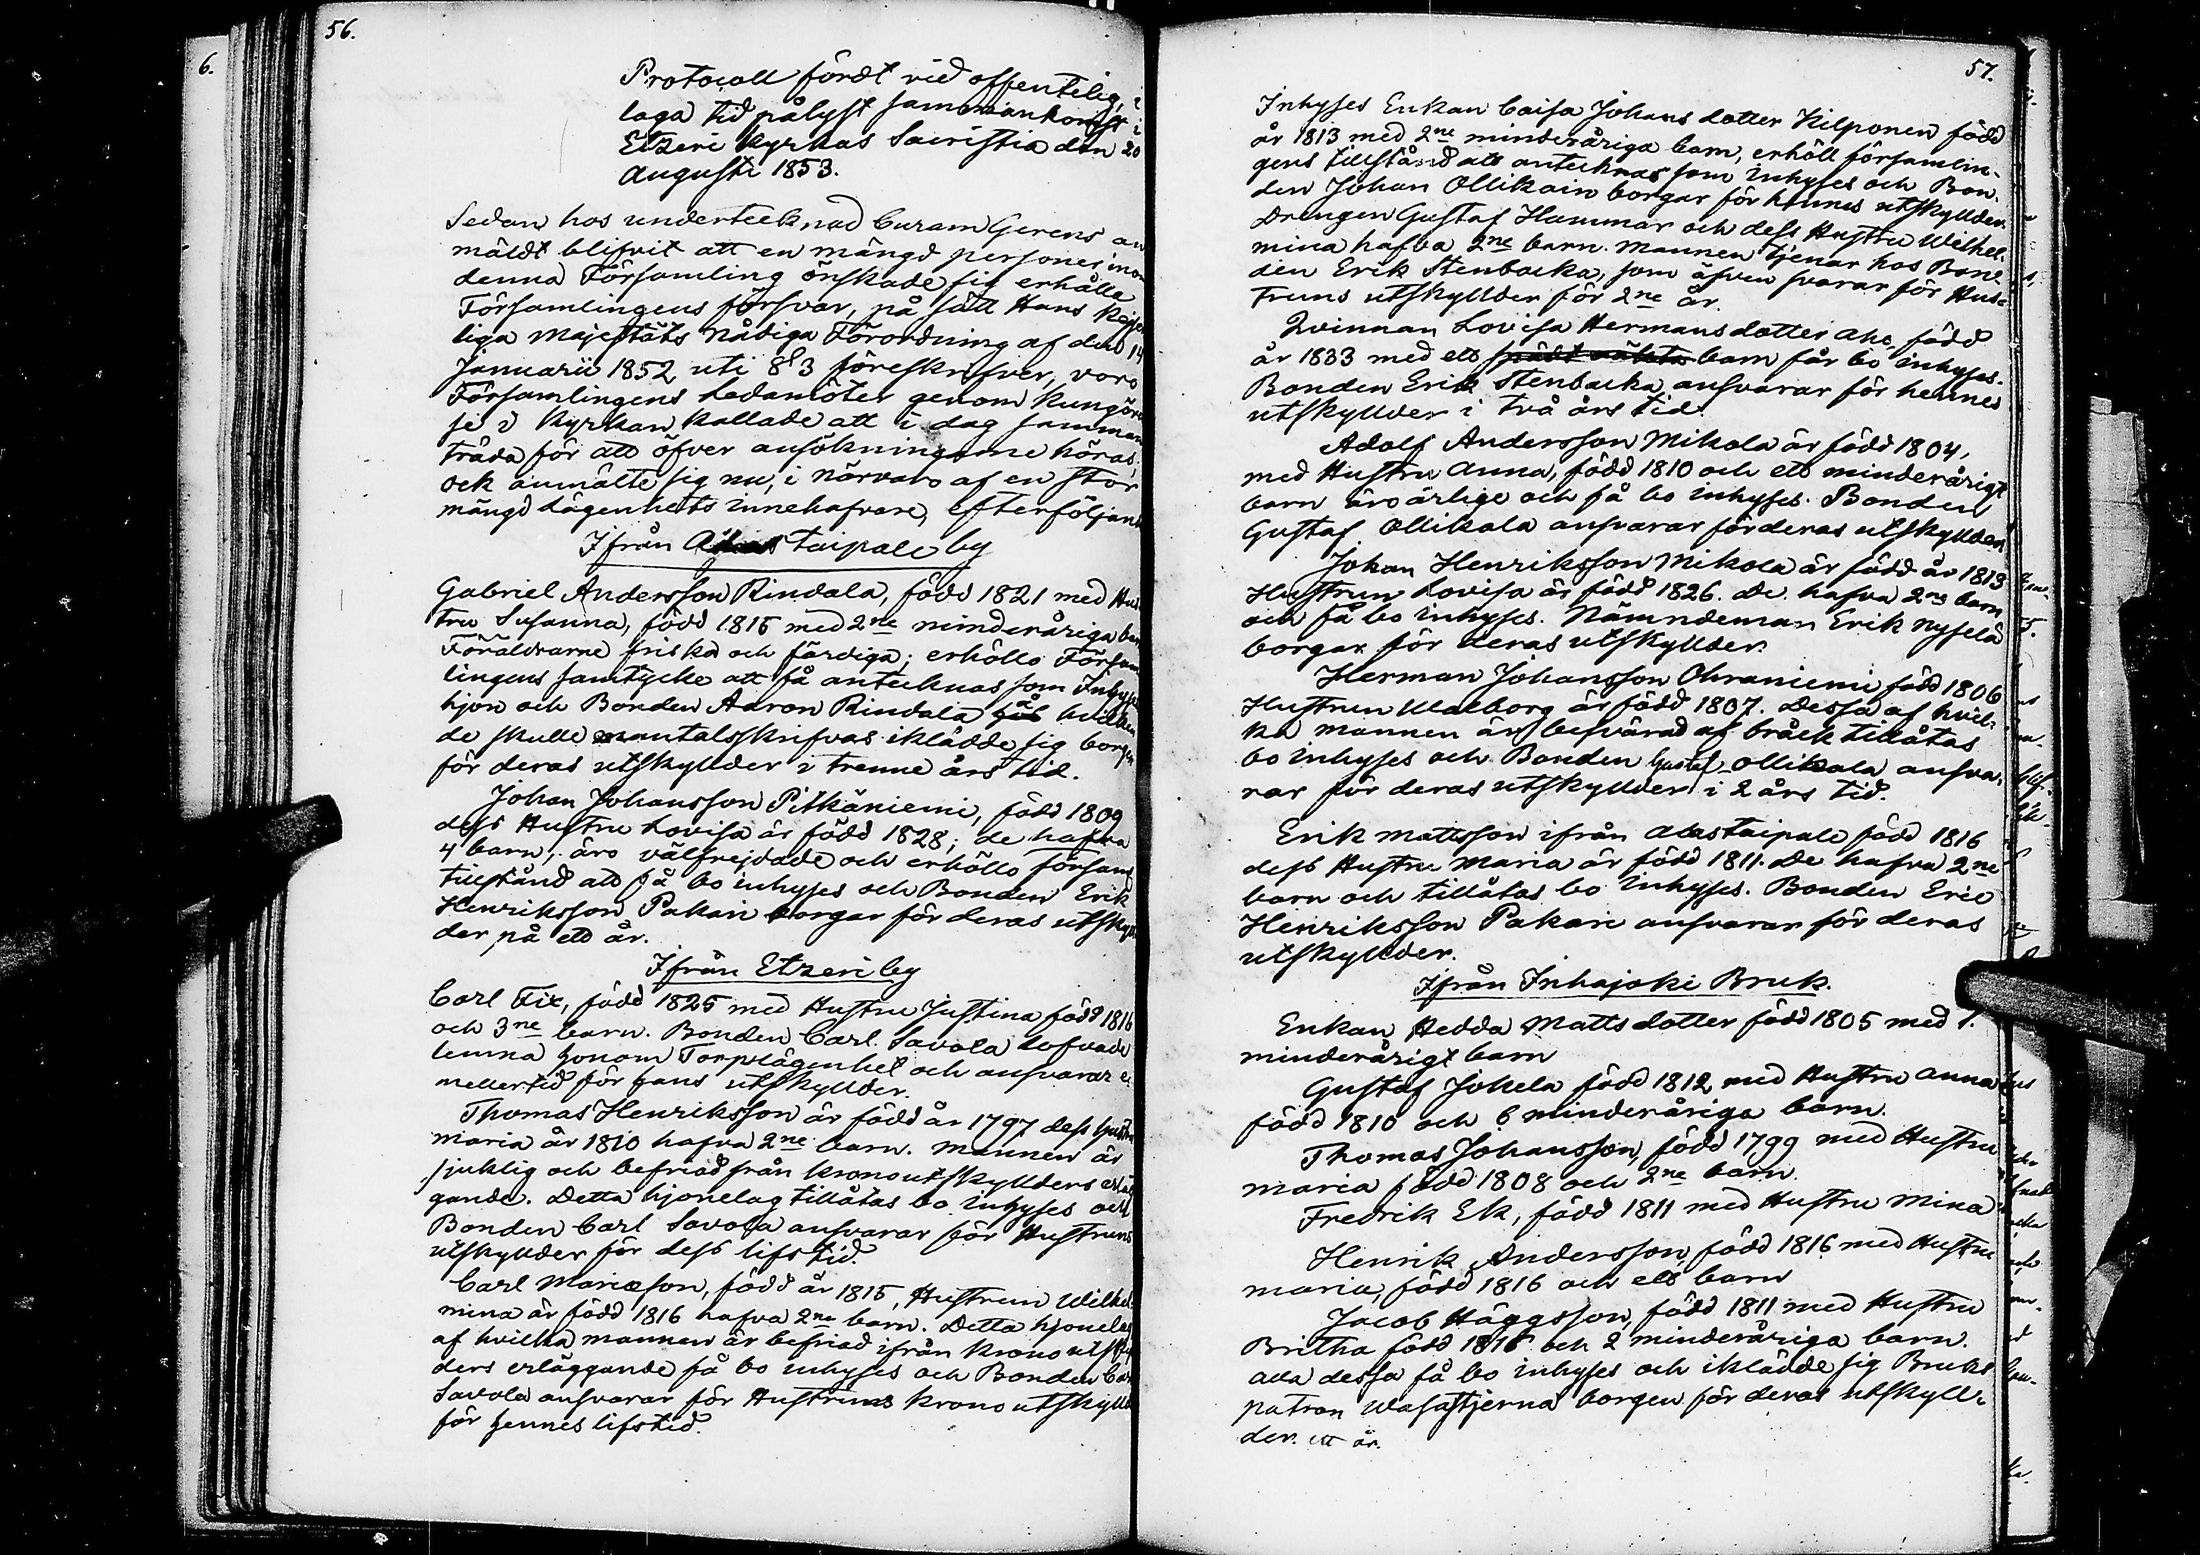 56.
Protocoll fördt vid offentelig, i
laga tid pålyst sammankomst i
Etzeri Kyrkas Sacristia den 20
Augusti 1853.
Sedan hos undertecknad Curam Gerens an
mäldt blifvit att en mängd personer inom
denna Församling önskade sig erhålla
Församlingens försvar, på sätt Hans Kejser
liga Majestäts Nådiga Förordning af den 14
Januarii 1852 uti 8 § 3 föreskrifver, voro
Församlingens Ledamöter genom Kungörel
se i Kyrkan kallade att i dag samman
träda för att öfver ansökningarne höras,
ock anmälte sig nu, i närvaro af en stor
mängd Lägenhets innehafvare, efterföljande
Ifrån Taipale by
Gabriel Andersson Rindala, född 1821 med Hus
tru Susanna, född 1815 med 2ne minderåriga barn
Föräldrarne friska och färdiga; erhöllo Försam
lingens samtycke att få antecknas som Inhyses
hjon och Bonden Aaron Rindala på hvilken
de skulle mantalsskrifvas iklädde sig borgen
för deras utskyllder i trenne års tid.
Johan Johansson Pitkäniemi, född 1809
dess Hustru Lovisa är född 1828; de hafva
4 barn; äro välfrejdade och erhöllo församl
tillstånd att få bo inhyses och Bonden Erik
Henriksson Pakari borgar för deras utskyll
der på ett år.
Ifrån Etzeri by
Carl Fix, född 1825 med Hustru Justina född 1816
och 3ne barn. Bonden Carl Savola lofvade
lemna honom Torplägenhet och ansvarar e
mellertid för hans utskyllder.
Thomas Henriksson är född år 1797 dess hustru
Maria år 1810 hafva 2ne barn. Mannen är
sjuklig och befriad från krono utskyllders erläg
gande. Detta hjonelag tillåtas bo inhyses och
Bonden Carl Savola ansvarar för Hustruns
utskyllder för dess lifstid.
Carl Mariæson, född år 1815, Hustrun Wilhel
mina är född 1816 hafva 2ne barn. Detta hjonelag
af hvilka mannen är befriad ifrån krono utskyl
ders erläggande få bo inhyses och Bonden Carl
Savola ansvarar för Hustruns krono utskylld
för hennes lifstid.
57.
Inhyses Enkan Caisa Johans dotter Kilponen född
år 1813 med 2ne minderåriga barn, erhöll församlin-
gens tillstånd att antecknas som inhyses och Bon-
den Johan Ollikain borgar för hennes utskyllder.
Drengen Gustaf Hammar och dess Hustru Wilhel-
mina hafva 2ne barn. Mannen tjenar hos Bon-
den Erik Stenbacka, som äfven svarar för Hus-
truns utskyllder för 2ne år.
Qvinnan Lovisa Hermans dotter Aho, född
år 1833 med ett barn får bo inhyses.
Bonden Erik Stenbacka ansvarar för hennes
utskyllder i två års tid.
Adolf Andersson Mikola är född 1804,
med Hustru Anna, född 1810 och ett minderårigt
barn äro ärlige och få bo inhyses. Bonden
Gustaf Ollikala ansvarar för deras utskyllder
Johan Henriksson Mikola är född år 1813
Hustrun Lovisa är född 1826. De hafva 2ne barn
och få bo inhyses. Nämndeman Erik Nyselä
borgar för deras utskyllder.
Herman Johansson Ohraniemi född 1806
Hustrun Walborg är född 1807. Dessa af hvil-
ka mannen är besvärad af bråck tillåtas
bo inhyses och Bonden Gustaf Ollikala ansva-
rar för deras utskyllder i 2 års tid.
Erik Mattsson ifrån Alastaipale född 1816
dess Hustru Maria är född 1811. De hafva 2ne
barn och tillåtas bo inhyses. Bonden Eric
Henriksson Pakari ansvarar för deras
utskyllder.
Ifrån Inhajoki Bruk.
Enkan Hedda Matts dotter född 1805 med 1.
minderårigt barn
Gustaf Jokela född 1812 med Hustru Anna
född 1810 och 6 minderåriga barn.
Thomas Johansson, född 1799 med Hustru
Maria född 1808 och 2ne barn.
Fredrik Ek, född 1811 med Hustru Mina
Henrik Andersson, född 1816 med Hustru
Maria, född 1816 och ett barn
Jacob Häggsson, född 1811 med Hustru
Britha född 1816 och 2 minderåriga barn.
Alla dessa få bo inhyses och iklädde sig Bruks
patron Wasastjerna borgen för deras utskyll-
der. ett år.